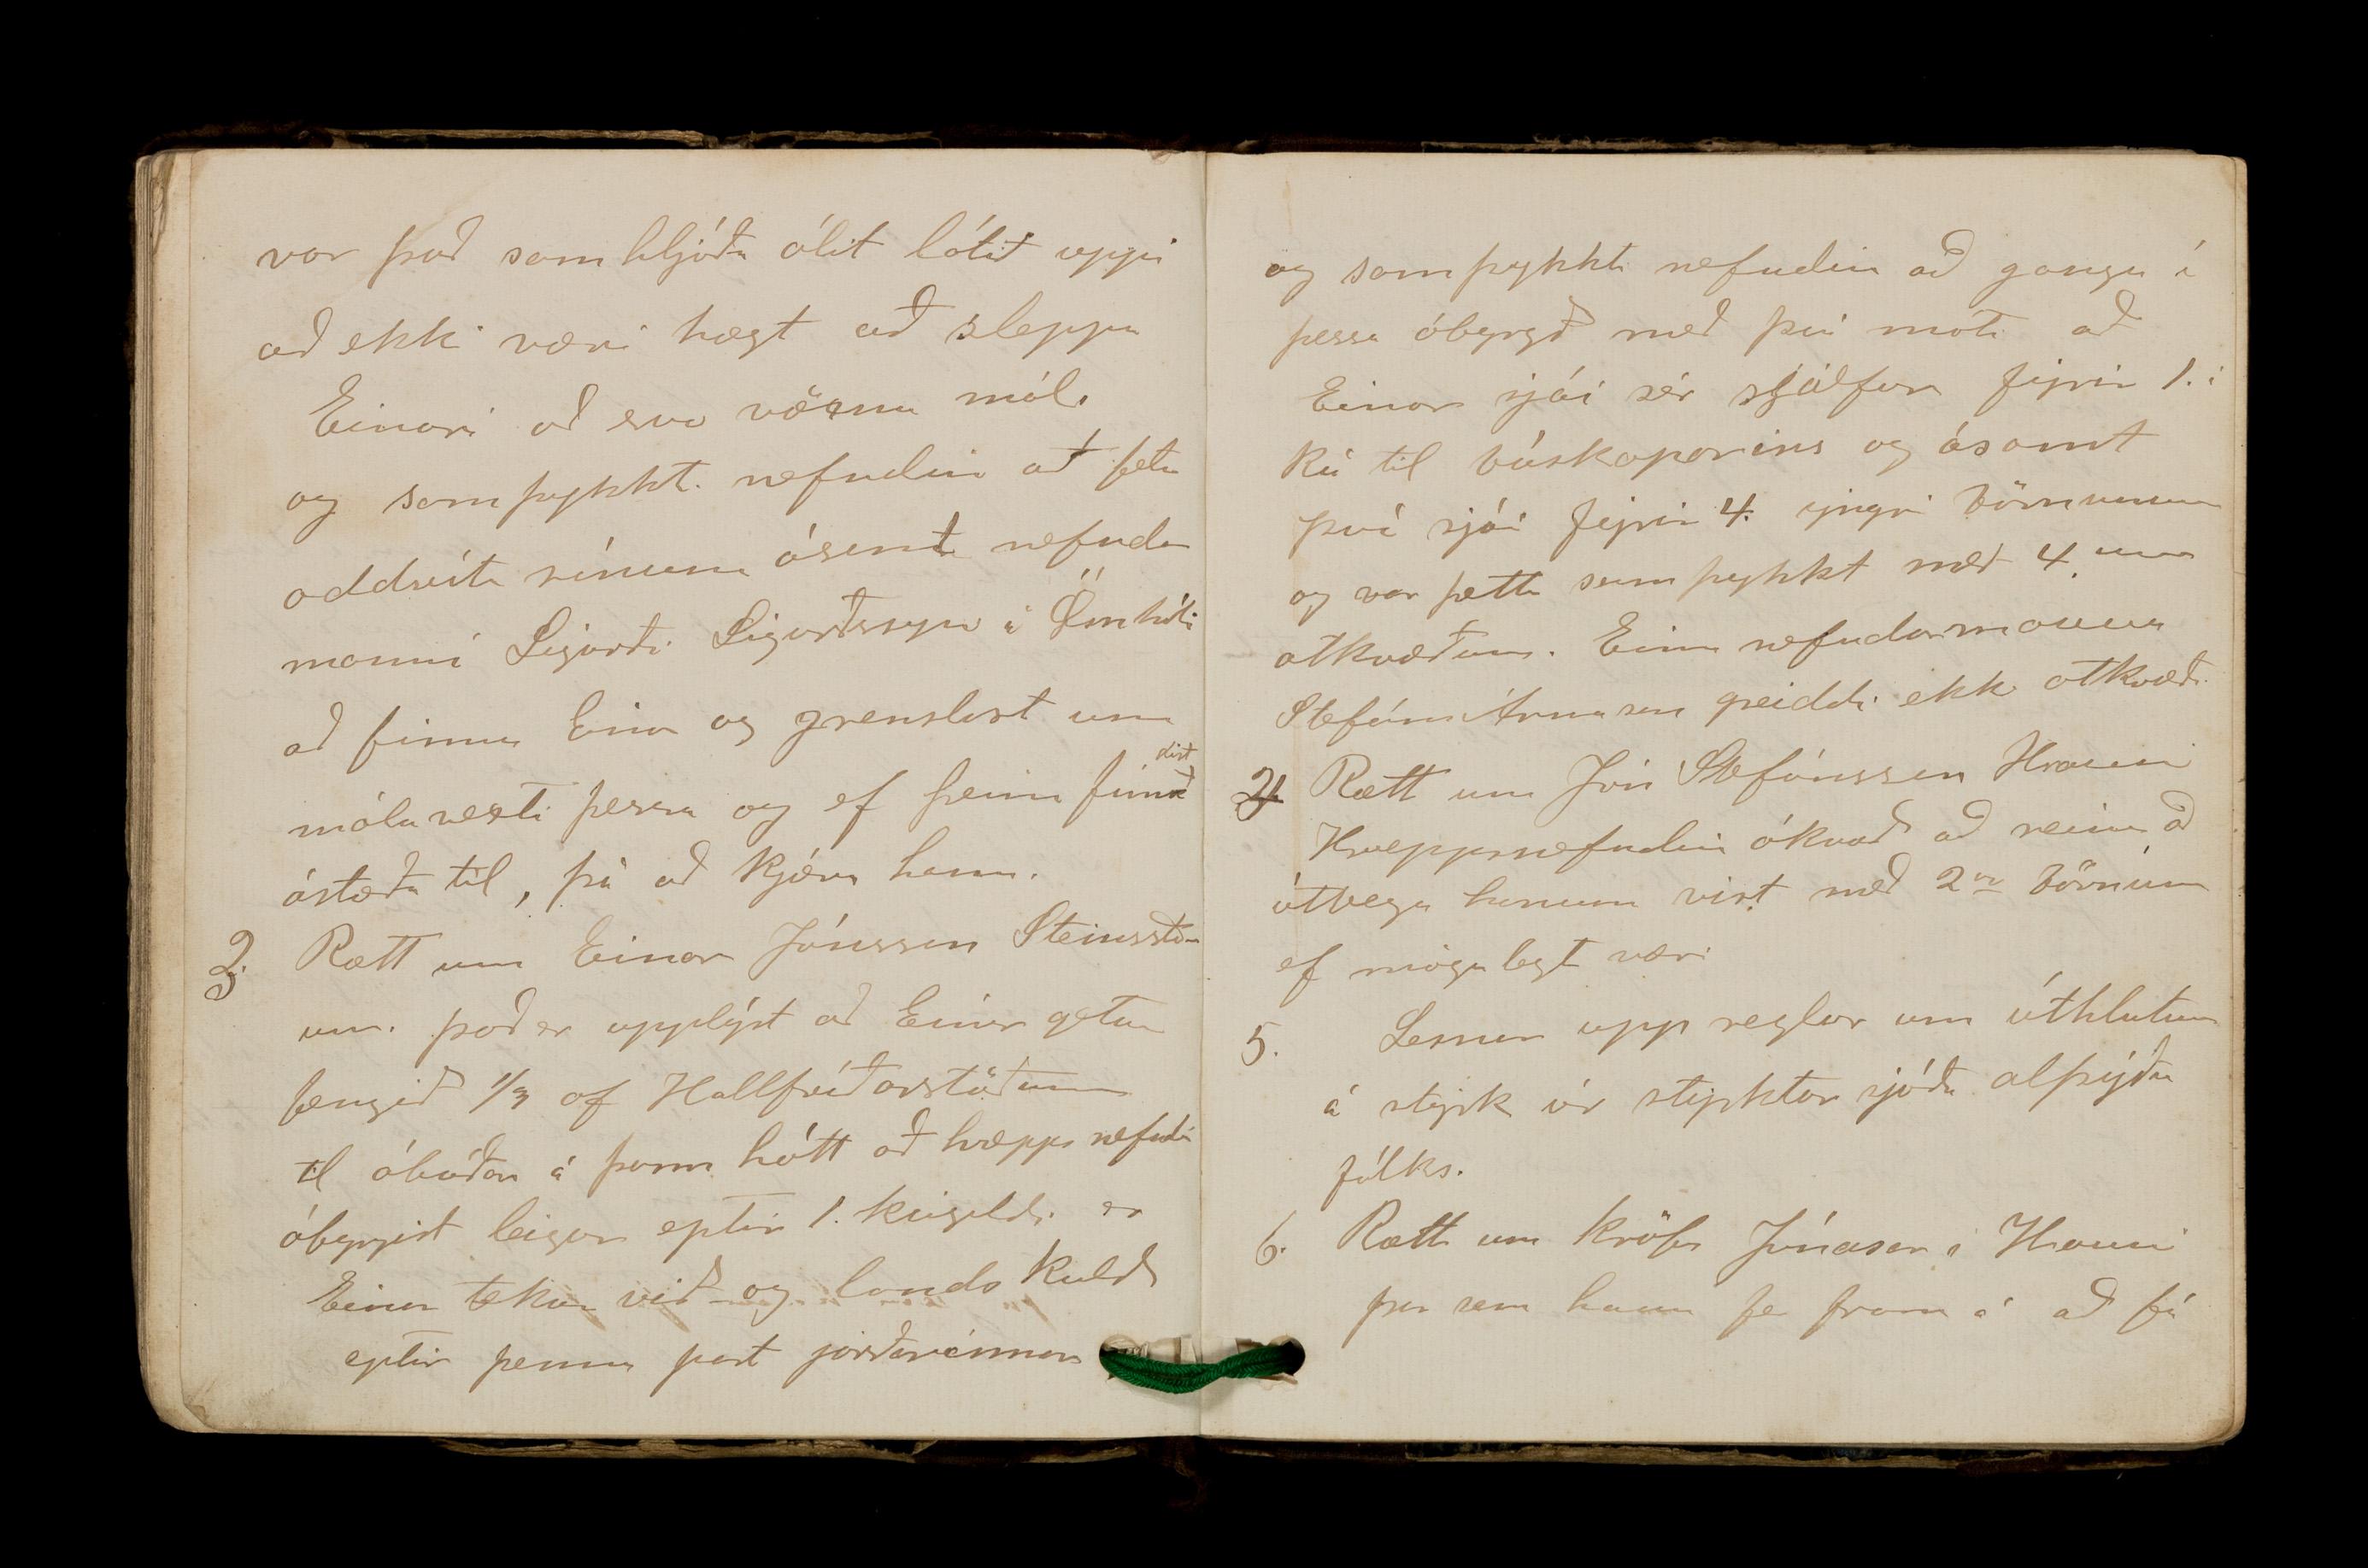 var það samhljóða álit látið uppi
að ekki væri hægt að sleppa
Einari að svo vöxnu máli
og samþykkti nefndin að fela
oddvita sínum ásamt nefndar
manni Sigurði Sigurðssyni á Öxnhóli
að finna Einar og grenslast um
málavexti þessa og ef þeim findist
ástæða til, þá að kjæra hann.
3. Rætt um Einar Jónsson Steinsstöð-
um. það er upplýst að Einar getur
fengið 1/3 af Hallfríðarstöðum
til ábúðar á þann hátt að hreppsnefndin
ábyrgist leigur eptir 1. kúgildi er
Einar tekur við og landskuld
eptir þennan part jarðarinnar
og samþykkti nefndin að ganga í
þessa ábyrgð með því móti að
Einar sjái sér sjálfur fyrir 1.i
kú til búskaparins og ásamt
því sjái fyrir 4. yngri börnunum
og var þetta samþykkt með 4.um
atkvæðum. Einn nefndarmanna
Stefán Árnason greiddi ekki atkvæði
4 Rætt um Jón Stefánsson Hrauni
Hreppsnefndin ákvað að reina að
útvega honum vist með 2ur börnum
ef mögulegt væri
5. Lesnar upp reglur um úthlutun
á styrk úr styrktarsjóði alþýðu
fólks.
6. Rætt um kröfu Jónasar í Hrauni
þar sem hann fer fram á að fá